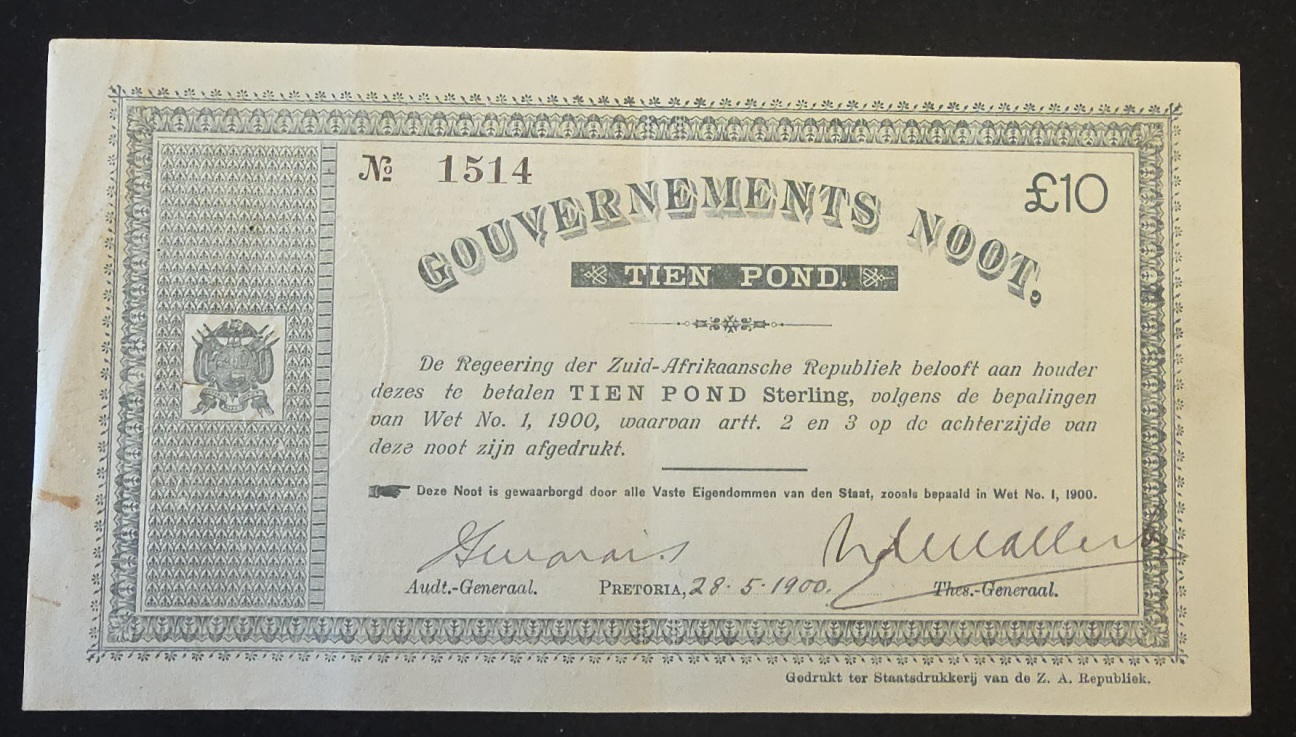 № 1514
£10
GOUVERNEMENTS NOOT,
TIEN POND.
De Regeering der Zuid-Afrikaansche Republiek belooft aan houder
dezes te betalen TIEN POND Sterling, volgens de bepalingen
van Wet No. 1, 1900, waarvan artt. 2 en 3 op de achterzijde van
deze noot zijn afgedrukt.
Deze Noot is gewaarborgd door alle Vaste Eigendommen van den Staat, zooals bepaald in Wet No. 1, 1900.
Audt.-Generaal. PRETORIA, 28·5·1900. Thes.-Generaal.
Gedrukt ter Staatsdrukkerij van de Z. A. Republiek.